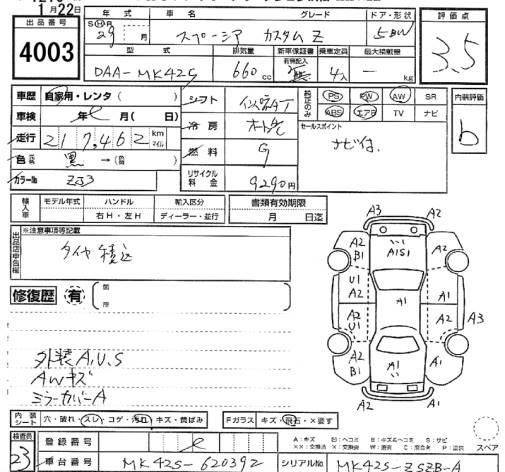 月22日
出品番号 4003
年式 車名 グレード ドア・形状
S H R 29 年 月 スペーシア カスタム Z 5 BW
型式 排気量 新車保証書 乗車定員 最大積載量
有無記入
DAA-MK42S 660 cc 4人 — kg
評価点
3.5
車歴 自家用・レンタ( )
車検 年 月( 日)
走行 217,462 km マイル
色 黒 →( )
カラーNo ZJ3
シフト インパネAT
冷房 オートAC
燃料 G
リサイクル料金 9290円
純正のみ PS PW AW SR
ABS エアB TV ナビ
セールスポイント
ナビ付、
内装評価
b
輸入車 モデル年式 ハンドル 輸入区分
右H・左H ディーラー・並行
書類有効期限
月 日迄
出品店申告欄 ※注意事項等記載
タイヤ積込
修復歴 有 箇所
外装A.U.S
AWキズ
ミラーカバーA
A3
A2
A2 A2
B1
A1S1
U1 A1
A2 A1
A1 A3
A2
U1
A2 A1
B1
A2
A3
スペア
内装シート 穴・破れ・スレ・コゲ・汚れ・キズ・黄ばみ Fガラス キズ・飛石・×要す
検査員 23
登録番号
車台番号 MK42S-620392
A:キズ
シリアルNo MK42S-ZSZB-A